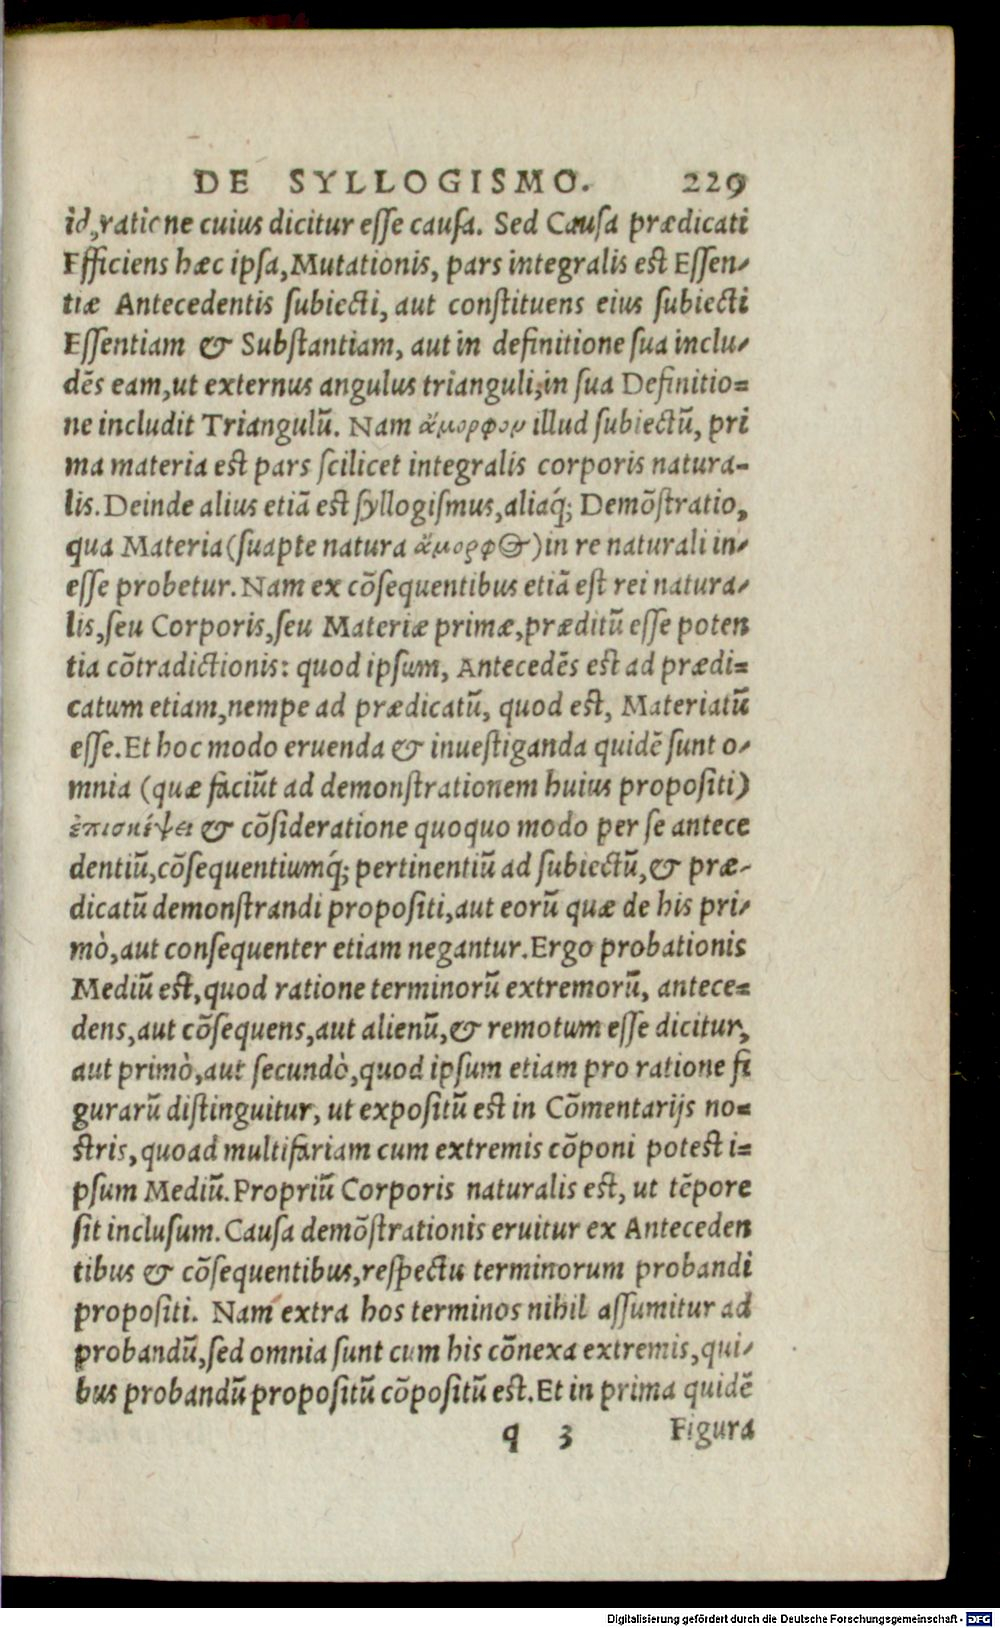 DE SYLLOGISMO. 229
id, ratione cuius dicitur esse causa. Sed Causa prædicati
Efficiens hæc ipsa, Mutationis, pars integralis est Essen-
tiæ Antecedentis subiecti, aut constituens eius subiecti
Essentiam & Substantiam, aut in definitione sua inclu-
dẽs eam, ut externus angulus trianguli, in sua Definitio=
ne includit Triangulũ. Nam ἄμορφον illud subiectũ, pri
ma materia est pars scilicet integralis corporis natura-
lis. Deinde alius etiã est syllogismus, aliaq́; Demõstratio,
qua Materia (suapte natura ἄμορφος) in re naturali in-
esse probetur. Nam ex cõsequentibus etiã est rei natura-
lis, seu Corporis, seu Materiæ primæ, præditũ esse poten
tia cõtradictionis: quod ipsum, Antecedẽs est ad prædi=
catum etiam, nempe ad prædicatũ, quod est, Materiatũ
esse. Et hoc modo eruenda & inuestiganda quidẽ sunt o-
mnia (quæ faciũt ad demonstrationem huius propositi)
ἐπισκέψει & cõsideratione quoquo modo per se antece
dentiũ, cõsequentiumq́; pertinentiũ ad subiectũ, & præ-
dicatũ demonstrandi propositi, aut eorũ quæ de his pri-
mò, aut consequenter etiam negantur. Ergo probationis
Mediũ est, quod ratione terminorũ extremorũ, antece=
dens, aut cõsequens, aut alienũ, & remotum esse dicitur,
aut primò, aut secundò, quod ipsum etiam pro ratione fi
gurarũ distinguitur, ut expositũ est in Cõmentarijs no=
stris, quoad multifariam cum extremis cõponi potest i=
psum Mediũ. Propriũ Corporis naturalis est, ut tẽpore
sit inclusum. Causa demõstrationis eruitur ex Anteceden
tibus & cõsequentibus, respectu terminorum probandi
propositi. Nam extra hos terminos nihil assumitur ad
probandũ, sed omnia sunt cum his cõnexa extremis, qui-
bus probandũ propositũ cõpositũ est. Et in prima quidẽ
q 3 Figura
Digitalisierung gefördert durch die Deutsche Forschungsgemeinschaft - DFG